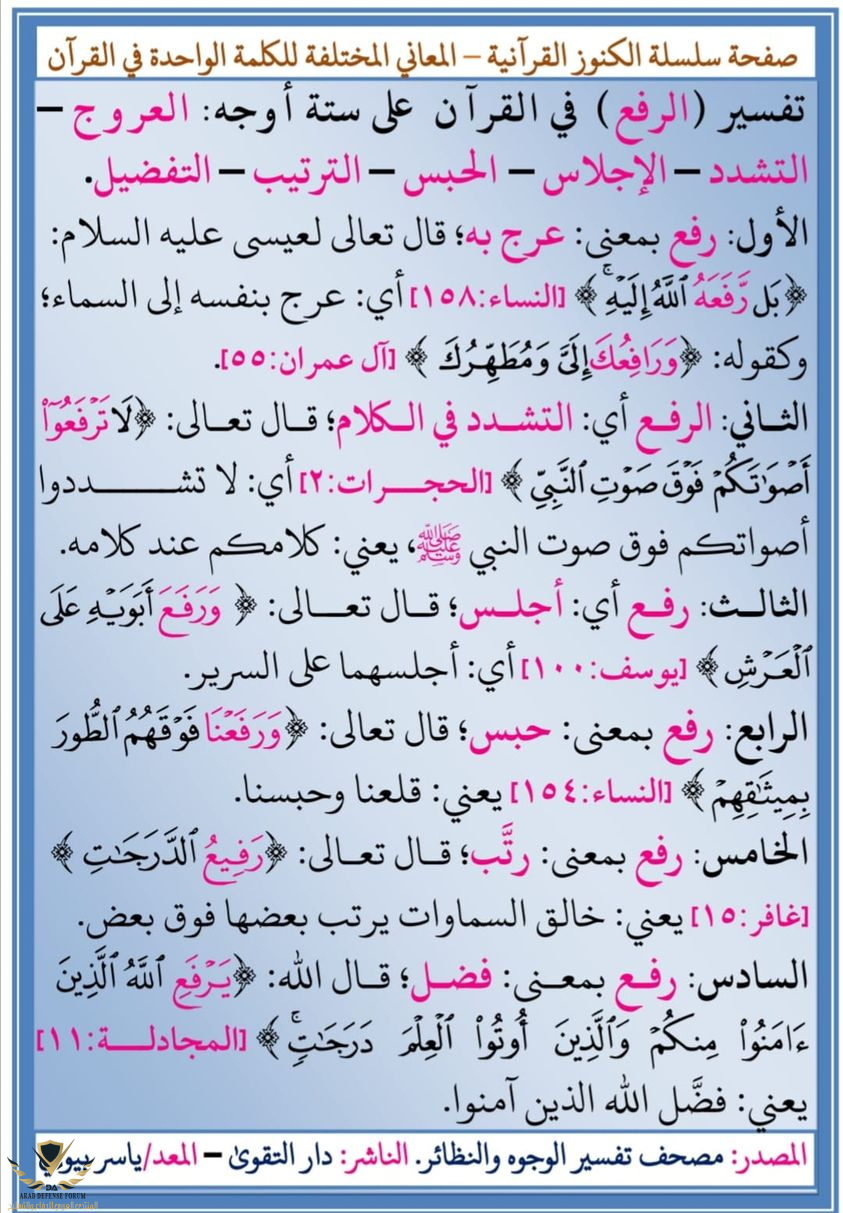 صفحة سلسلة الكنوز القرآنية – المعاني المختلفة للكلمة الواحدة في القرآن
تفسير (الرفع) في القرآن على ستة أوجه: العروج –
التشدد – الإجلاس – الحبس – الترتيب – التفضيل.
الأول: رفع بمعنى: عرج به؛ قال تعالى لعيسى عليه السلام:
﴿بَل رَّفَعَهُ ٱللَّهُ إِلَيۡهِۚ﴾ [النساء:١٥٨] أي: عرج بنفسه إلى السماء؛
وكقوله: ﴿وَرَافِعُكَ إِلَىَّ وَمُطَهِّرُكَ﴾ [آل عمران:٥٥].
الثاني: الرفع أي: التشدد في الكلام؛ قال تعالى: ﴿لَا تَرۡفَعُوٓاْ
أَصۡوَٰتَكُمۡ فَوۡقَ صَوۡتِ ٱلنَّبِيِّ﴾ [الحجرات:٢] أي: لا تشددوا
أصواتكم فوق صوت النبي ﷺ، يعني: كلامكم عند كلامه.
الثالث: رفع أي: أجلس؛ قال تعالى: ﴿وَرَفَعَ أَبَوَيۡهِ عَلَى
ٱلۡعَرۡشِ﴾ [يوسف:١٠٠] أي: أجلسهما على السرير.
الرابع: رفع بمعنى: حبس؛ قال تعالى: ﴿وَرَفَعۡنَا فَوۡقَهُمُ ٱلطُّورَ
بِمِيثَٰقِهِمۡ﴾ [النساء:١٥٤] يعني: قلعنا وحبسنا.
الخامس: رفع بمعنى: رتَّب؛ قال تعالى: ﴿رَفِيعُ ٱلدَّرَجَٰتِ﴾
[غافر:١٥] يعني: خالق السماوات يرتب بعضها فوق بعض.
السادس: رفع بمعنى: فضل؛ قال الله: ﴿يَرۡفَعِ ٱللَّهُ ٱلَّذِينَ
ءَامَنُواْ مِنكُمۡ وَٱلَّذِينَ أُوتُواْ ٱلۡعِلۡمَ دَرَجَٰتٖۚ﴾ [المجادلة:١١]
يعني: فضَّل الله الذين آمنوا.
المصدر: مصحف تفسير الوجوه والنظائر. الناشر: دار التقوى – المعد/ياسر
ARAB DEFENSE FORUM